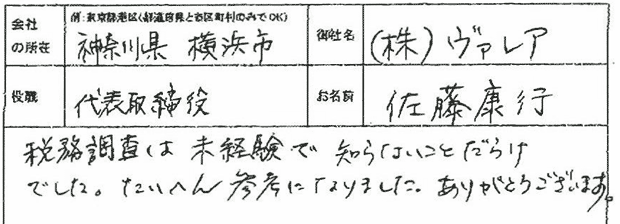 会社の所在
例：東京都港区(都道府県と市区町村のみでOK)
神奈川県 横浜市
御社名
(株)ヴァレア
役職
代表取締役
お名前
佐藤康行
税務調査は未経験で知らないことだらけ
でした。たいへん参考になりました。ありがとうございます。